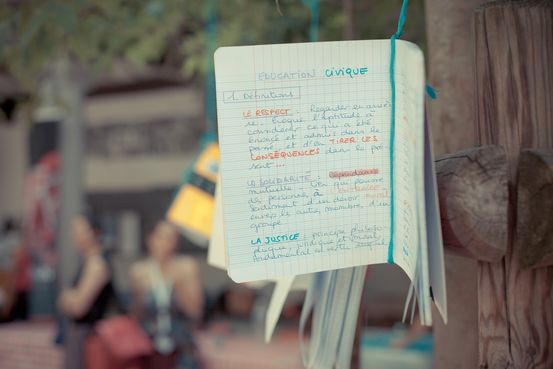 EDUCATION CIVIQUE
1. Définitions
LE RESPECT : Regarder en arriè
re. Evoque l'aptitude à
considérer ce qui a été
énoncé et admis dans le
passé, et d'en TIRER LES
CONSÉQUENCES dans le pré
sent...
LA SOLIDARITÉ : Dépendance
mutuelle. Lien qui
des personnes à
sentiment d'un devoir moral
envers les autres membres d'un
groupe
LA JUSTICE : principe
juridique et moral
fondamental